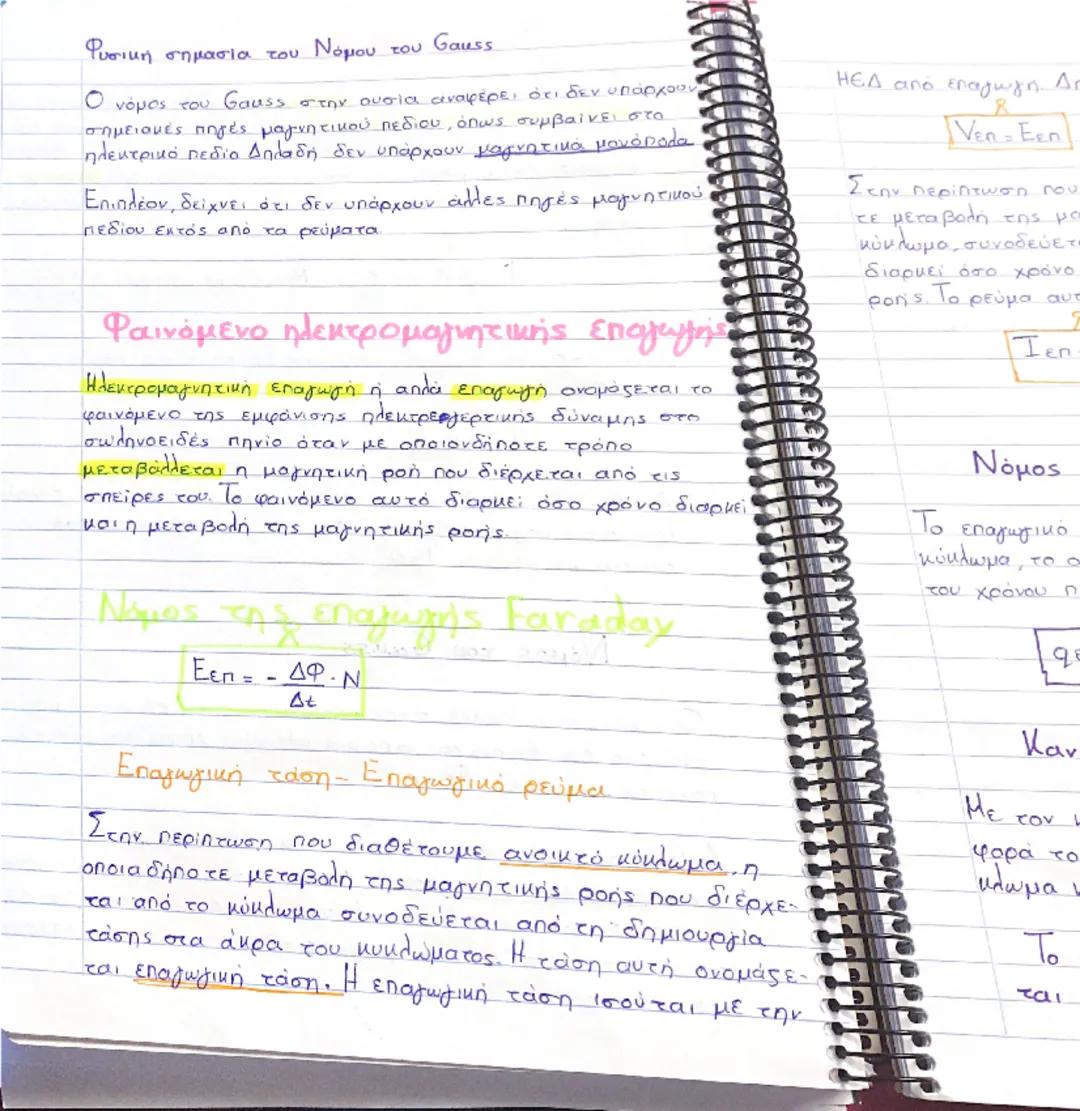 Φυσική σημασία του Νόμου του Gauss
Ο νόμος του Gauss στην ουσία αναφέρει ότι δεν υπάρχουν
σημειακές πηγές μαγνητικού πεδίου, όπως συμβαίνει στο
ηλεκτρικό πεδίο Δηλαδή δεν υπάρχουν μαγνητικά μονόπολα
Επιπλέον, δείχνει ότι δεν υπάρχουν άλλες πηγές μαγνητικού
πεδίου εκτός από τα ρεύματα.
Φαινόμενο ηλεκτρομαγνητικής επαγωγής
Ηλεκτρομαγνητική επαγωγή ή απλά επαγωγή ονομάζεται το
φαινόμενο της εμφάνισης ηλεκτρεγερτικής δύναμης στο
σωληνοειδές πηνίο όταν με οποιονδήποτε τρόπο
μεταβάλλεται η μαγνητική ροή που διέρχεται από τις
σπείρες του. Το φαινόμενο αυτό διαρκεί όσο χρόνο διαρκεί
και η μεταβολή της μαγνητικής ροής.
Νόμος της επαγωγής Faraday
Εεπ = - ΔΦ/Δt · N
Επαγωγική τάση - Επαγωγικό ρεύμα
Στην περίπτωση που διαθέτουμε ανοικτό κύκλωμα, η
οποιαδήποτε μεταβολή της μαγνητικής ροής που διέρχε-
ται από το κύκλωμα συνοδεύεται από τη δημιουργία
τάσης στα άκρα του κυκλώματος. Η τάση αυτή ονομάζε-
ται επαγωγική τάση. Η επαγωγική τάση ισούται με την
ΗΕΔ από επαγωγή.
Vεπ = Εεπ
Στην περίπτωση που
τε μεταβολή της
κύκλωμα,
διαρκεί όσο χρόνο
ροής. Το ρεύμα
Ιεπ
Νόμος
Το επαγωγικό
κύκλωμα, το
του χρόνου
Με τον
φορά το
κλωμα
Το
ται